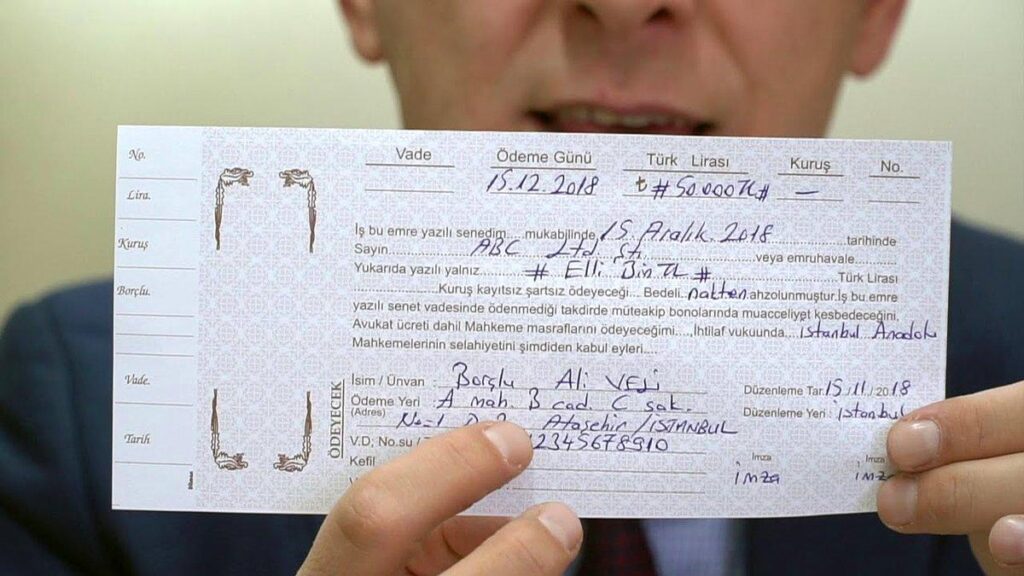 No.
Lira.
Kuruş
Borçlu.
Vade.
Tarih
Vade Ödeme Günü Türk Lirası Kuruş No.
15.12.2018 ₺ #50.000TL# —
İş bu emre yazılı senedim.....mukabilinde 15. Aralık. 2018 tarihinde
Sayın ABC Ltd. Şti. veya emruhavale....
Yukarıda yazılı yalnız # Elli Bin TL # Türk Lirası
Kuruş kayıtsız şartsız ödeyeceği... Bedeli nakten ahzolunmuştur.İş bu emre
yazılı senet vadesinde ödenmediği takdirde müteakip bonolarında muacceliyt kesbedeceğini,
Avukat ücreti dahil Mahkeme masraflarını ödeyeceğimi....,İhtilaf vukuunda istanbul Anadolu
Mahkemelerinin selahiyetini şimdiden kabul eyleri....
ÖDEYECEK
İsim / Ünvan : Borçlu Ali VELİ
Ödeme Yeri : A mah. B cad. C sok.
(Adres) No=1 Ataşehir/İSTANBUL
V.D, No.su / 12345678910
Kefil
Düzenleme Tar. 15/11/2018
Düzenleme Yeri : istanbul
İmza İmza
imza imza